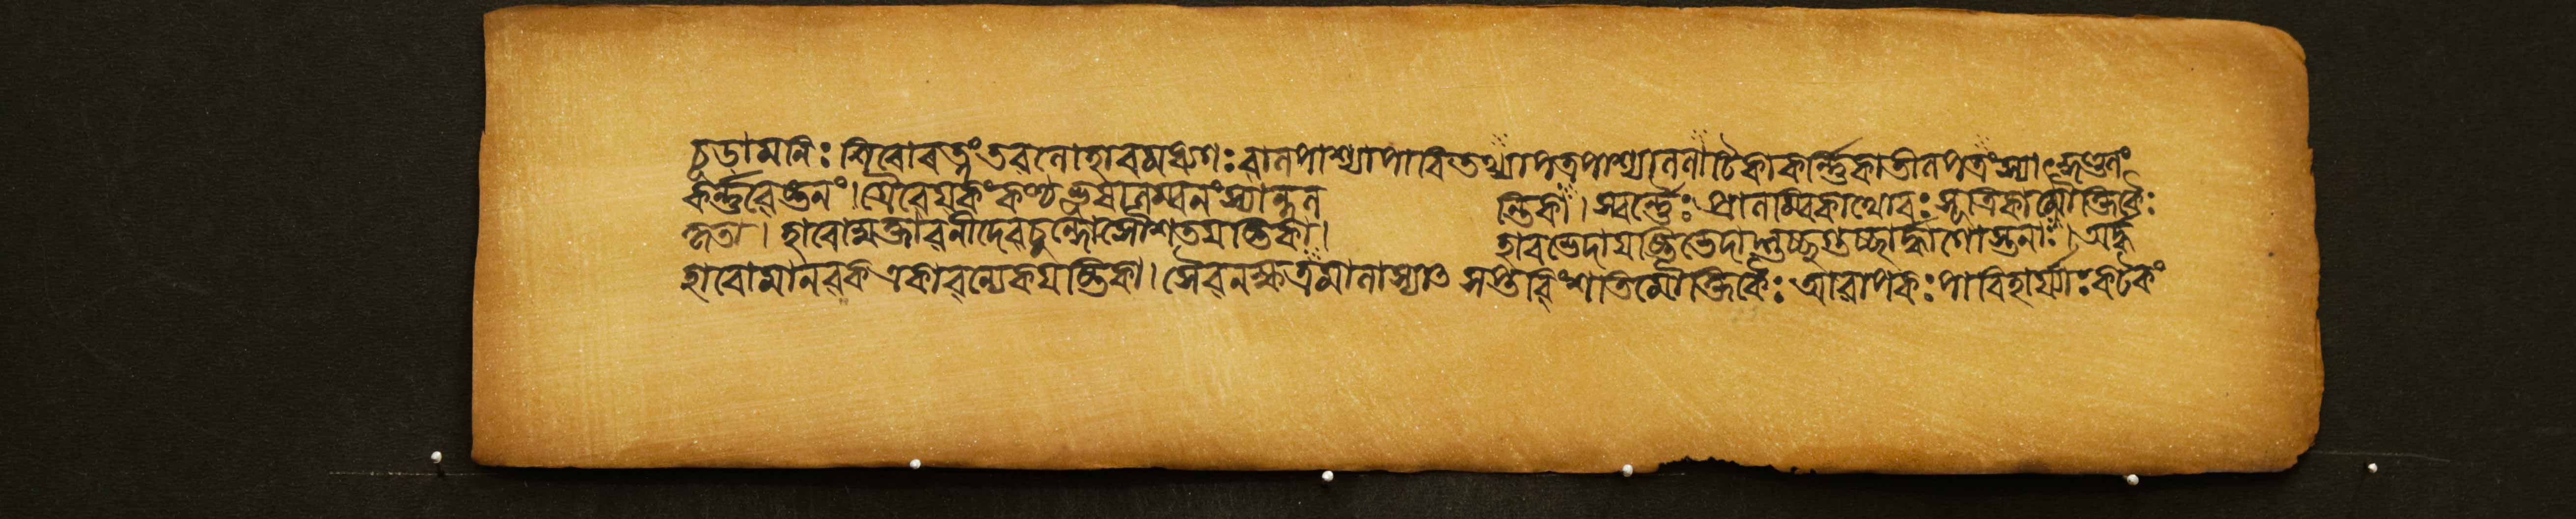 চূডামনিঃ শিৰোৰত্নং তৰলোহাৰমধ্যগঃ বালপাশ্যাপাৰিতথ্যাপত্রপাশ্যাললাটিকাকর্ন্নিকাতালপত্রং স্যাৎকুণ্ডলং
কর্ন্নবেষ্টনং। গ্রৈবেয়কং কণ্ঠভূষালম্বনং স্যাল্লল ন্তিকা। স্বর্ন্নৈঃ প্রালম্বিকাথোৰঃসূত্রিকামৌক্তিকৈঃ
কৃতা। হাৰোমুক্তাবলীদেবচ্ছন্দোসৌশতযষ্টিকা। হাৰভেদাযষ্টিভেদাদ্গুচ্ছগুচ্ছার্দ্ধগোস্তনাঃ। অর্দ্ধ
হাৰোমানবক একাবল্যেকযষ্টিকা। সৈবনক্ষত্রমালাস্যাৎ সপ্তবিংশতিমৌক্তিকৈঃ আবাপকঃ পাৰিহার্য্যঃ কটকং